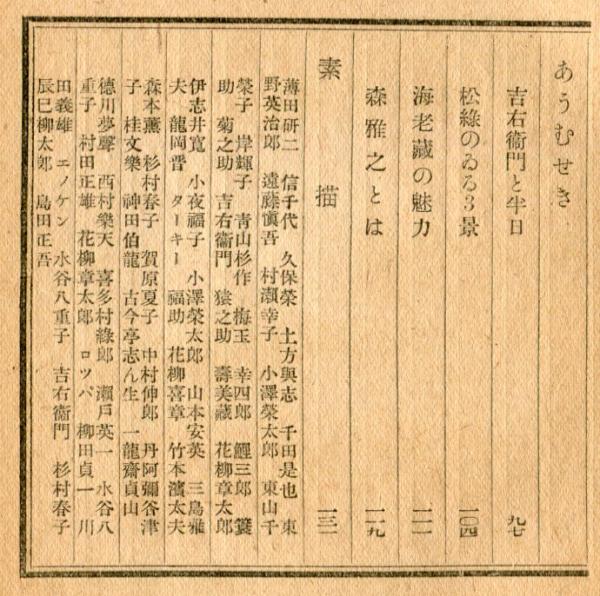 あうむせき
吉右衞門と半日 九七
松綠のゐる3景 一〇四
海老藏の魅力 一一一
森雅之とは 一一九
素描 一三一
薄田研二 信千代 久保榮 土方與志 千田是也 東
野英治郎 遠藤愼吾 村瀨幸子 小澤榮太郎 東山千
榮子 岸輝子 靑山杉作 梅玉 幸四郎 鯉三郎 簑
助 菊之助 吉右衞門 猿之助 壽美藏 花柳章太郎
伊志井寬 小夜福子 小澤榮太郎 山本安英 三島雅
夫 龍岡晋 ターキー 福助 花柳喜章 竹本濱太夫
森本薰 杉村春子 賀原夏子 中村伸郎 丹阿彌谷津
子 桂文樂 神田伯龍 古今亭志ん生 一龍齋貞山
德川夢聲 西村樂天 喜多村綠郎 瀨戸英一 水谷八
重子 村田正雄 花柳章太郎 ロツパ 柳田貞一 川
田義雄 エノケン 水谷八重子 吉右衞門 杉村春子
辰巳柳太郎 島田正吾